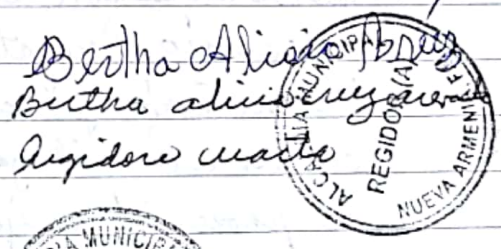 Bertha Alicia
Bertha alicia cruz
Regidora cuarta
ALCALDIA MUNICIPAL
REGIDORIA
NUEVA ARMENIA F.
IA MUNICIPA